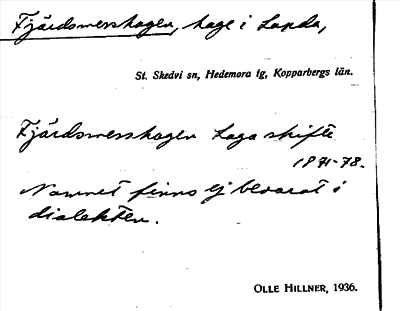 Fjärdsmesshagen, hage i Landa,
St. Skedvi sn, Hedemora tg, Kopparbergs län.
Fjärdsmesshagen Laga skifte
1871-78.
Namnet finns ej bevarat i
dialekten.
OLLE HILLNER, 1936.